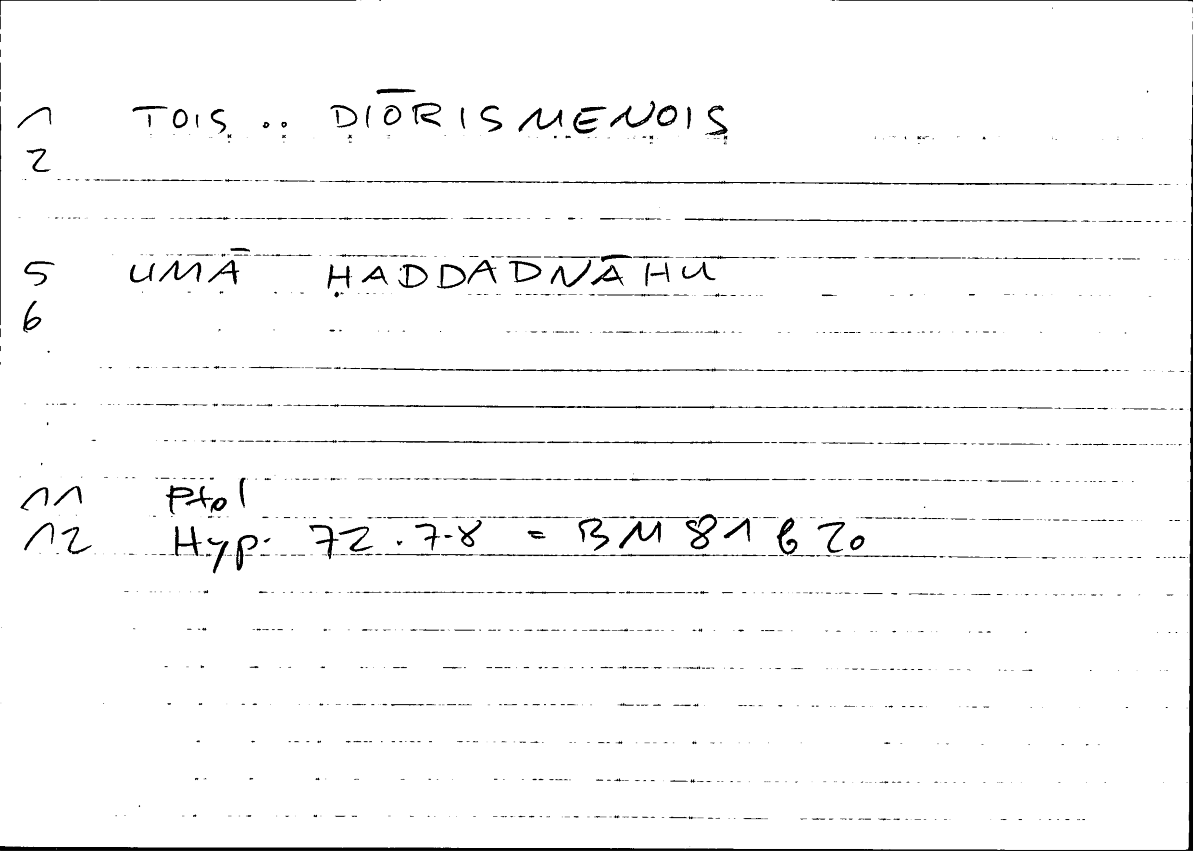 1 TOIS .. DIŌRISMENOIS
2
5 UMĀ ḤADDADNĀHU
6
11 Ptol
12 Hyp. 72.7-8 = BM 81 b 20